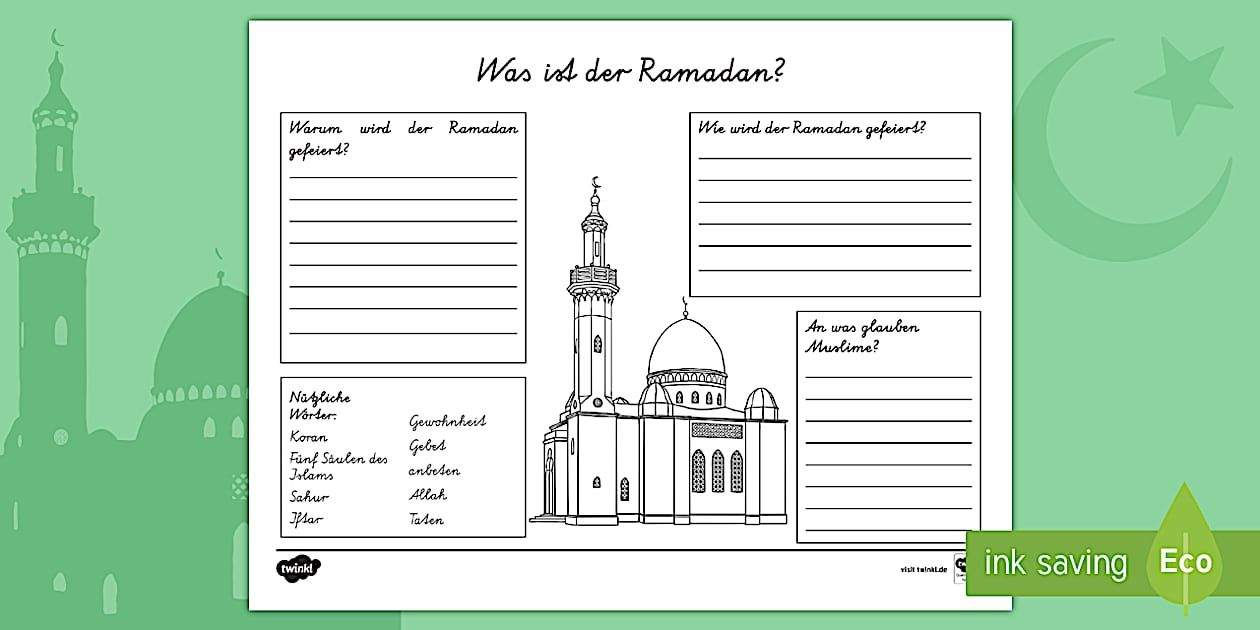 Was ist der Ramadan?
Warum wird der Ramadan
gefeiert?
Wie wird der Ramadan gefeiert?
An was glauben
Muslime?
Nützliche
Wörter:
Koran
Fünf Säulen des
Islams
Sahur
Iftar
Gewohnheit
Gebet
anbeten
Allah
Taten
twinkl
visit twinkl.de
ink saving
Eco